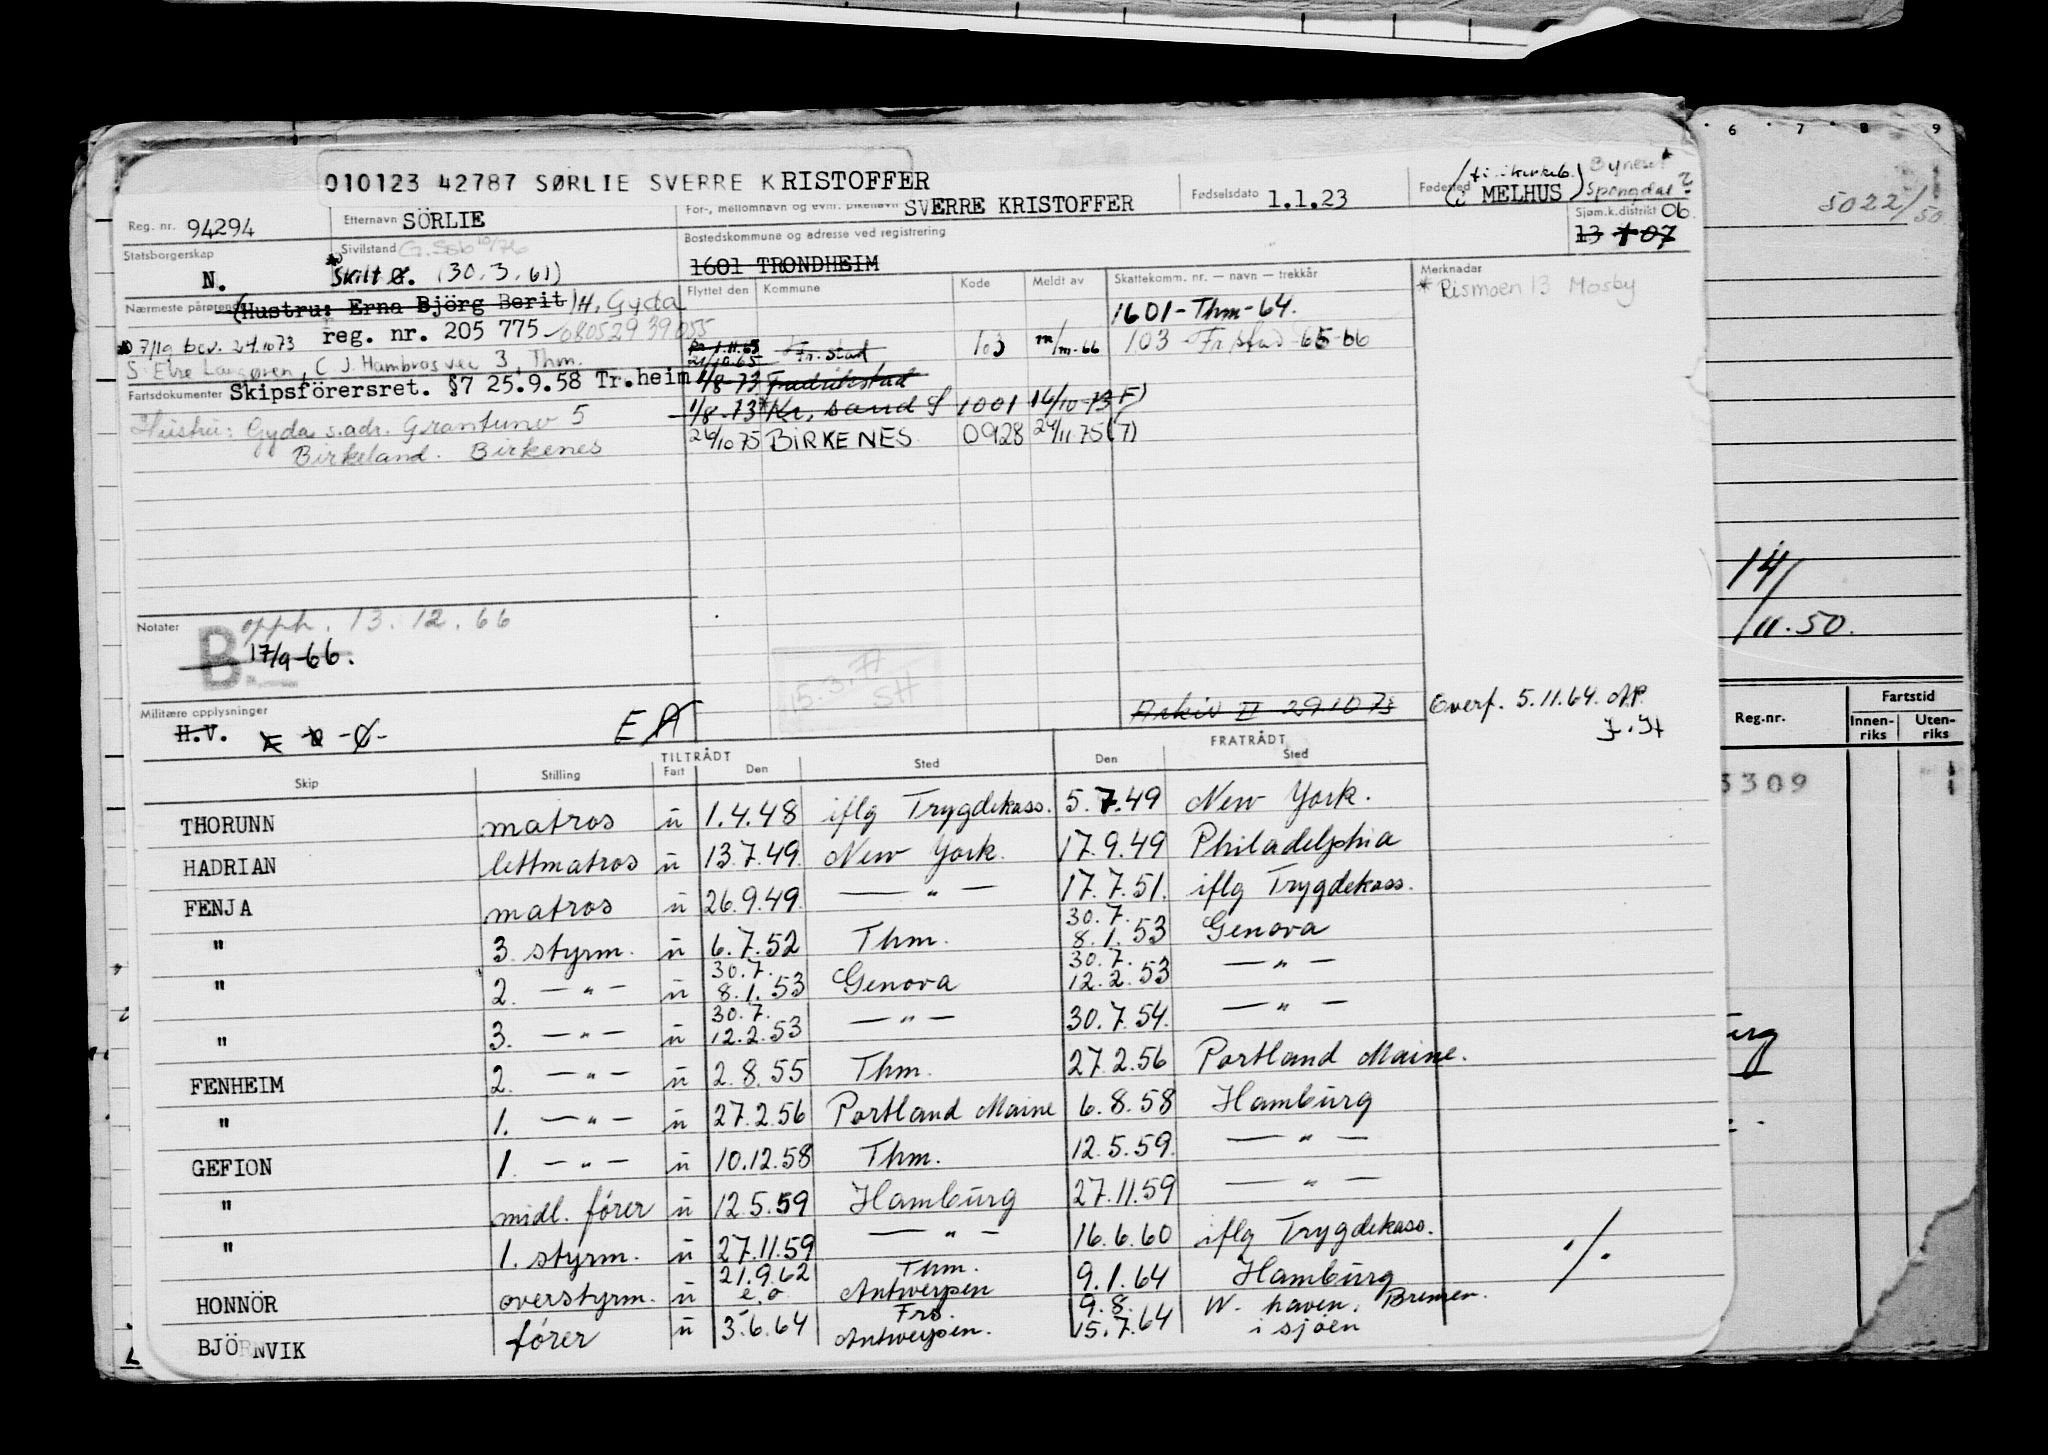 6 7 8 9
010123 42787 SØRLIE SVERRE KRISTOFFER
Reg. nr. 94294 Etternavn SÖRLIE For-, mellomnavn og evnt. pikenavn SVERRE KRISTOFFER Fødselsdato 1.1.23 Fødested i MELHUS
Statsborgerskap N. Sivilstand Skilt Ø. (30.3.61) Bostedskommune og adresse ved registrering 1601 TRONDHEIM Sjøm.k.distrikt 06 13 + 07
5022/50
Nærmeste pårørende (Hustru: Erna Björg Berit) H. Gyda Flyttet den Kommune Kode Meldt av Skattekomm. nr. — navn — trekkår Merknader
1601 - Thm - 64. * Rismoen 13 Mosby
reg. nr. 205 775 - 080529 39055
7/19 bev. 24.10 73 1.11.65 21/10.65 Fr.stad 103 m/m-66 103 Fr.stad 65-66
S. Else Langøren, C J. Hambros vei 3, Thm.
Fartsdokumenter Skipsförersret. §7 25.9.58 Tr.heim 1/8-73 Fredrikstad
1/8-73 * Kr, sand S 1001 16/10-73 F)
Hustru: Gyda s.adr. Grantunv 5 26/10 75 BIRKENES 0928 24/11 75 (7)
Birkeland. Birkenes
Notater B opph. 13.12.66
17/9-66.
14/
/11.50.
15.3.77
SH
Arkiv II 29 10 73 Overf. 5.11.64.
Militære opplysninger H.V. -Ø- E A
TILTRÅDT FRATRÅDT
Skip Stilling Fart Den Sted Den Sted
Reg.nr. Fartstid
Innen-riks Uten-riks
3309
THORUNN matros u 1.4.48 iflg Trygdekass. 5.7.49 New York.
HADRIAN lettmatros u 13.7.49 New York. 17.9.49 Philadelphia
FENJA matros u 26.9.49. — " — 17.7.51. iflg Trygdekass.
" 3 styrm. u 6.7.52 Thm. 30.7. 8.1.53 Genova
" 2. — " — u 30.7. 8.1.53 Genova 30.7. 12.2.53 — " —
" 3. — " — u 30.7. 12.2.53 — " — 30.7.54. — " —
FENHEIM 2. — " — u 2.8.55 Thm. 27.2.56 Portland Maine.
" 1. — " — u 27.2.56 Portland Maine 6.8.58 Hamburg
GEFION 1. — " — u 10.12.58 Thm. 12.5.59. — " —
" midl. fører u 12.5.59 Hamburg 27.11.59 — " —
" 1. styrm. u 27.11.59 — " — 16.6.60 iflg Trygdekass. ./.
HONNÖR overstyrm. u 21.9.62 e.o Thm. Antwerpen 9.1.64 Hamburg
BJÖRNVIK fører u 3.6.64 Frs. Antwerpen. 9.8. 15.7.64 W. haven. Bremen. i sjøen